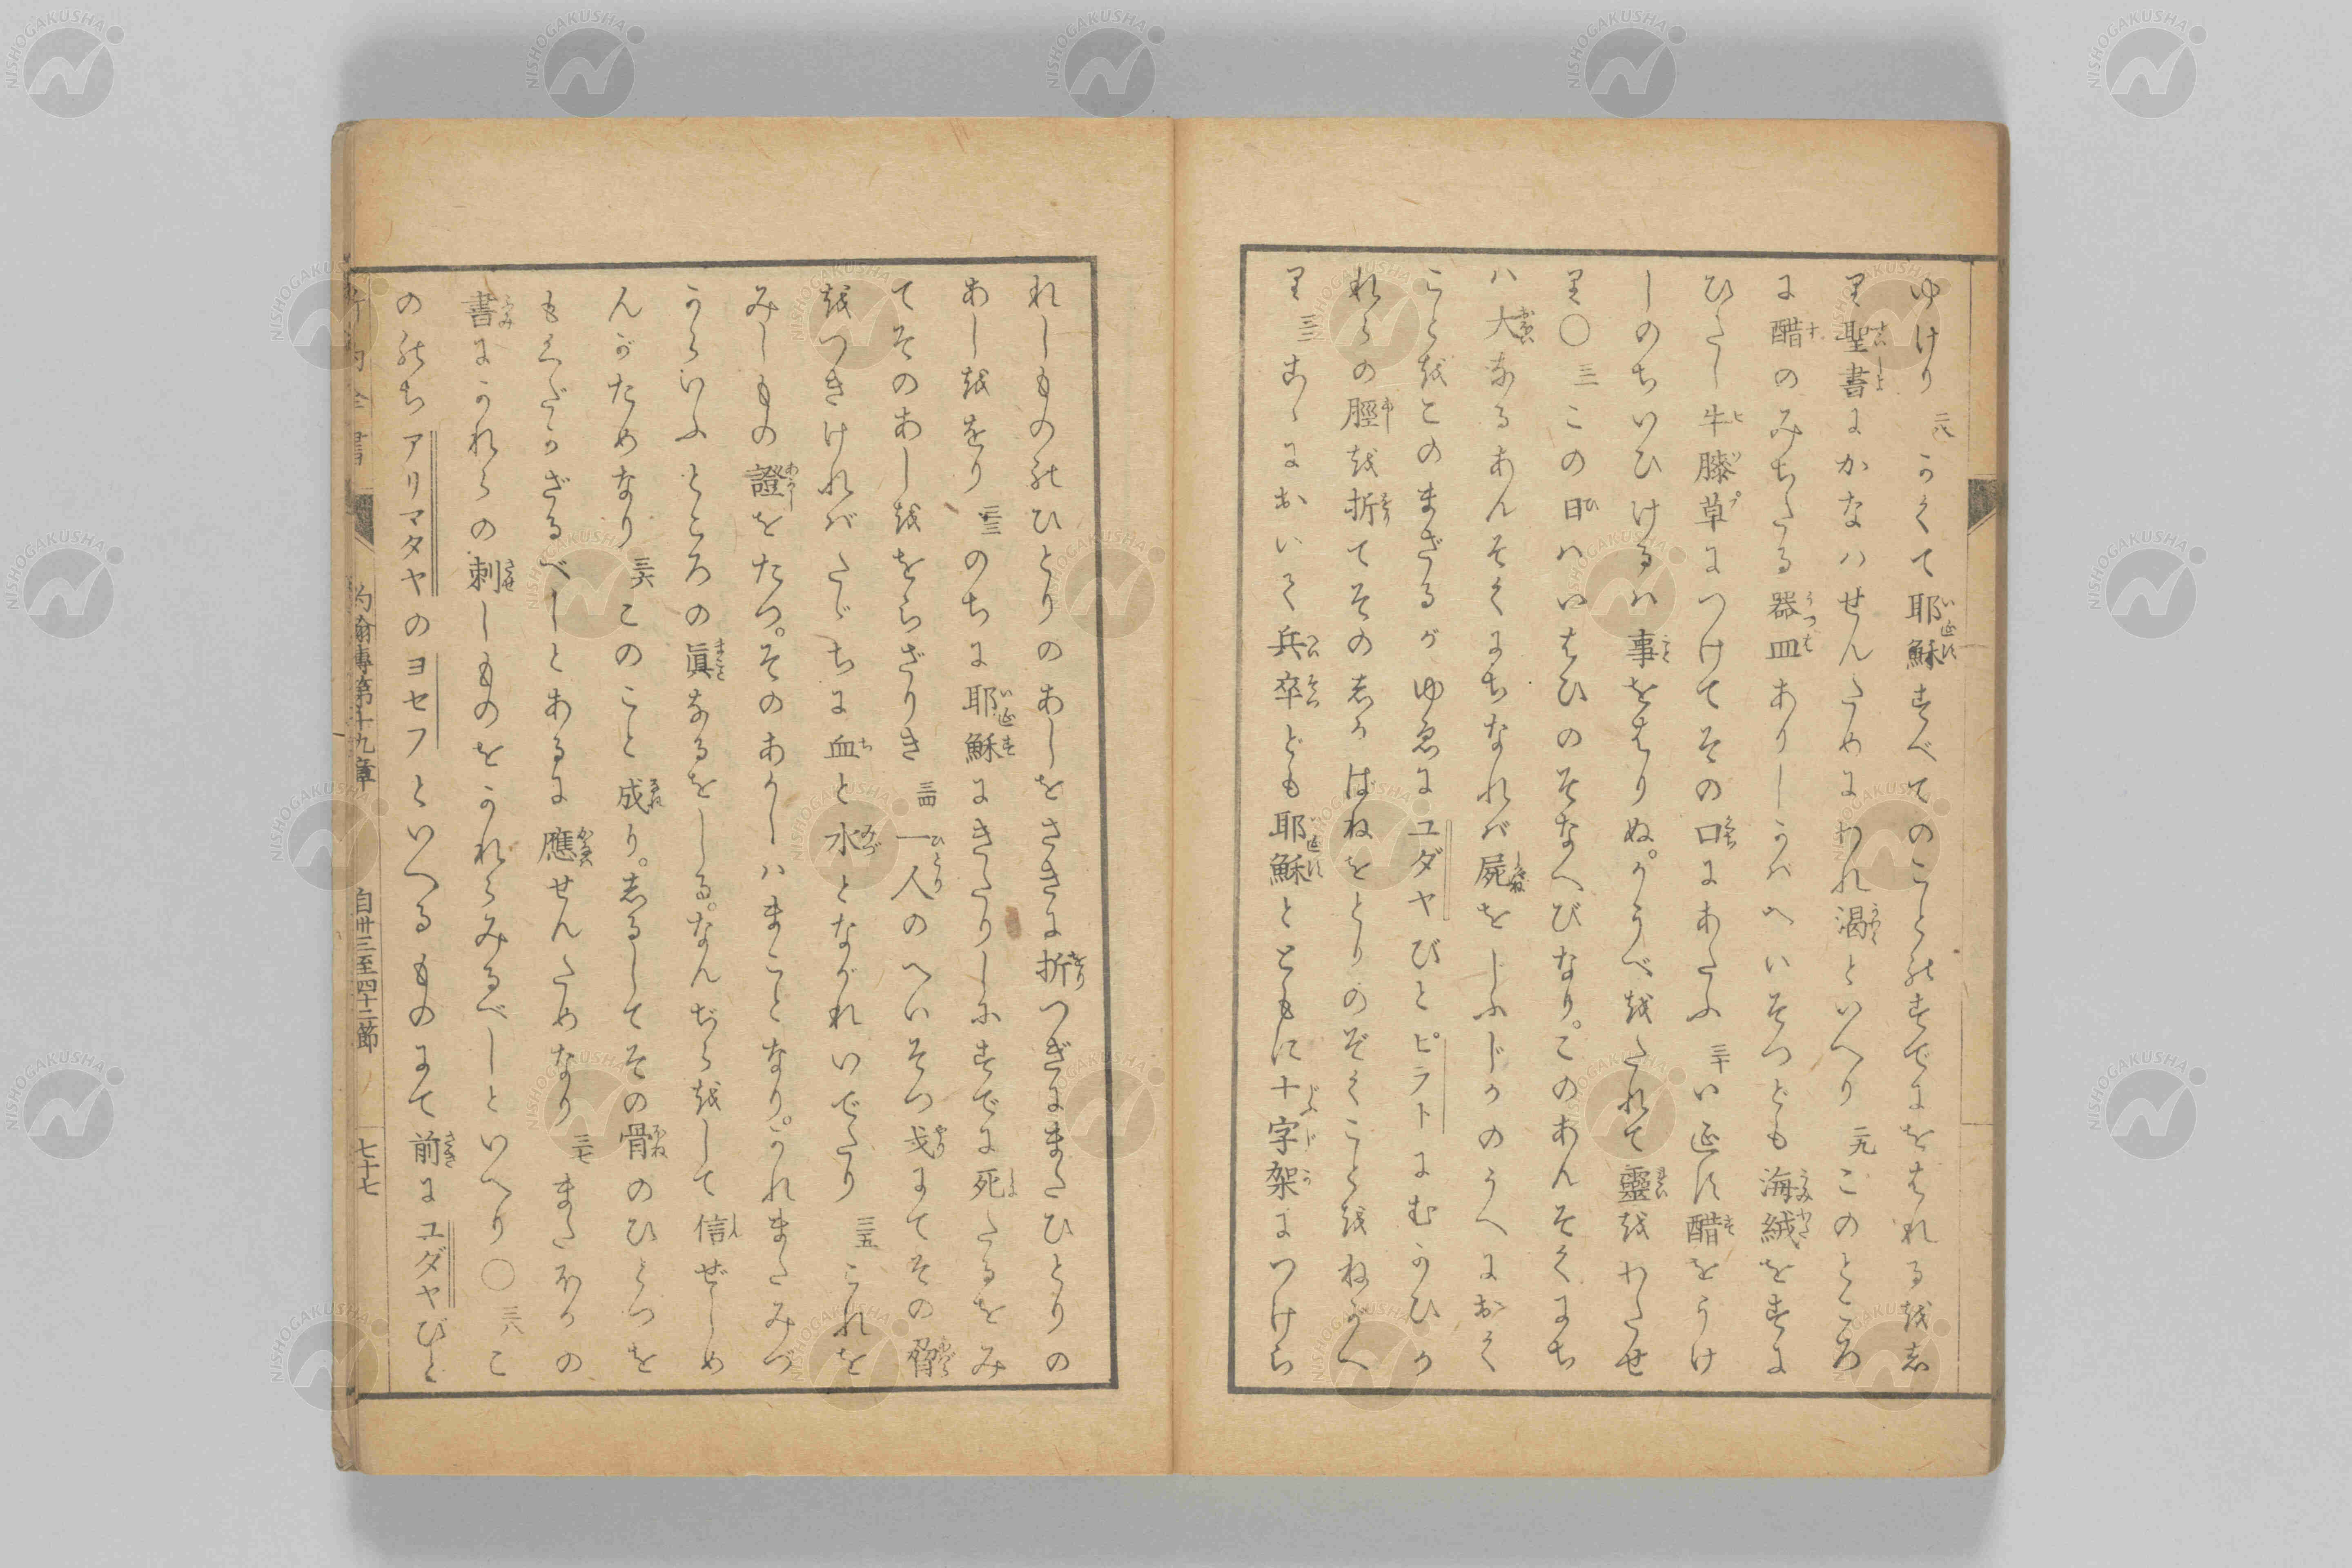 ゆけり 二八 かくて耶穌すべてのことのすでにをはれるを志
り聖書にかなハせんためにわれ渇といへり 二九 このところ
に醋のみちたる器皿ありしかバへいそつども海絨をすに
ひたし牛膝草につけてその口にあたふ 三十 いゑす醋をうけ
しのちいひけるハ事をはりぬ。かうべをたれて靈をわたせ
り〇 三一 この日ハいはひのそなへびなり。このあんそくにち
ハ大なるあんそくにちなれバ屍をしふじかのうへにおく
ことをこのまざるがゆゑにユダヤびとピラトにむかひか
れらの脛を折てその志かばねをとりのぞくことをねがへ
り 三二 こゝにおいて兵卒ども耶穌とともに十字架につけら
れしものゝひとりのあしをさきに折つぎにまたひとりの
あしををり 三三 のちに耶穌にきたりしにすでに死たるをみ
てそのあしををらざりき 三四 一人のへいそつ戈にてその脅
をつきけれバたゞちに血と水とながれいでたり 三五 これを
みしもの證をたつ。そのあかしハまことなり。かれまたみづ
からいふところの眞なるをしる。なんぢらをして信ぜしめ
んがためなり 三六 このこと成り。志るしてその骨のひとつを
もくだかざるべしとあるに應せんためなり 三七 またほかの
書にかれらの刺しものをかれらみるべしといへり〇 三八 こ
ののちアリマタヤのヨセフといへるものにて前にユダヤびと
新約全書 約翰傳第十九章 自卅三至四十二節 七十七
NISHOGAKUSHA